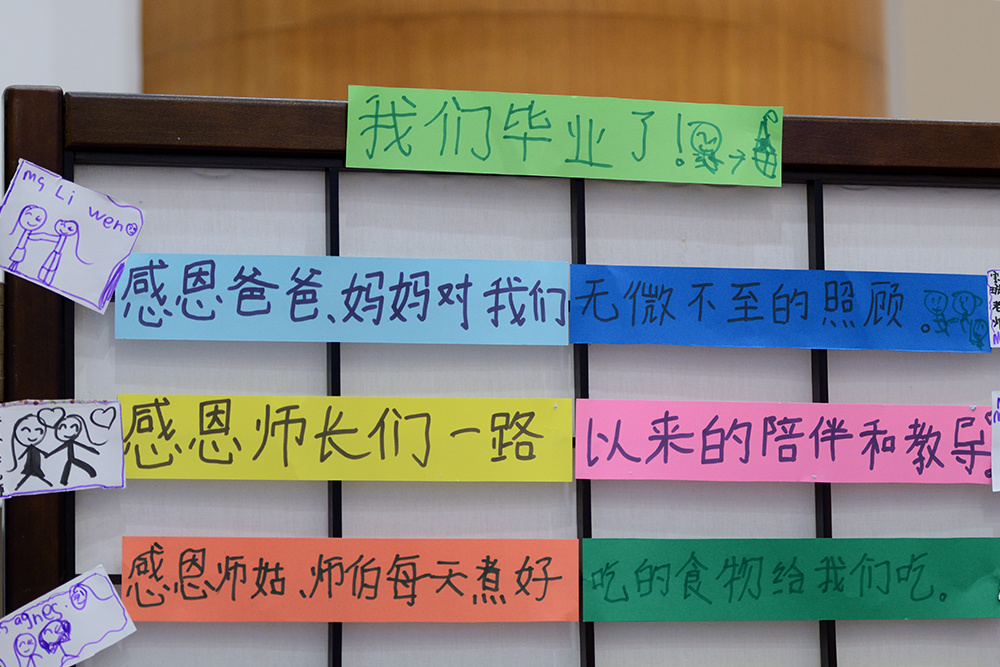 我们毕业了!
Ms Li Wen
感恩爸爸、妈妈对我们无微不至的照顾。
感恩师长们一路以来的陪伴和教导。
感恩师姑、师伯每天煮好吃的食物给我们吃。
s agnes